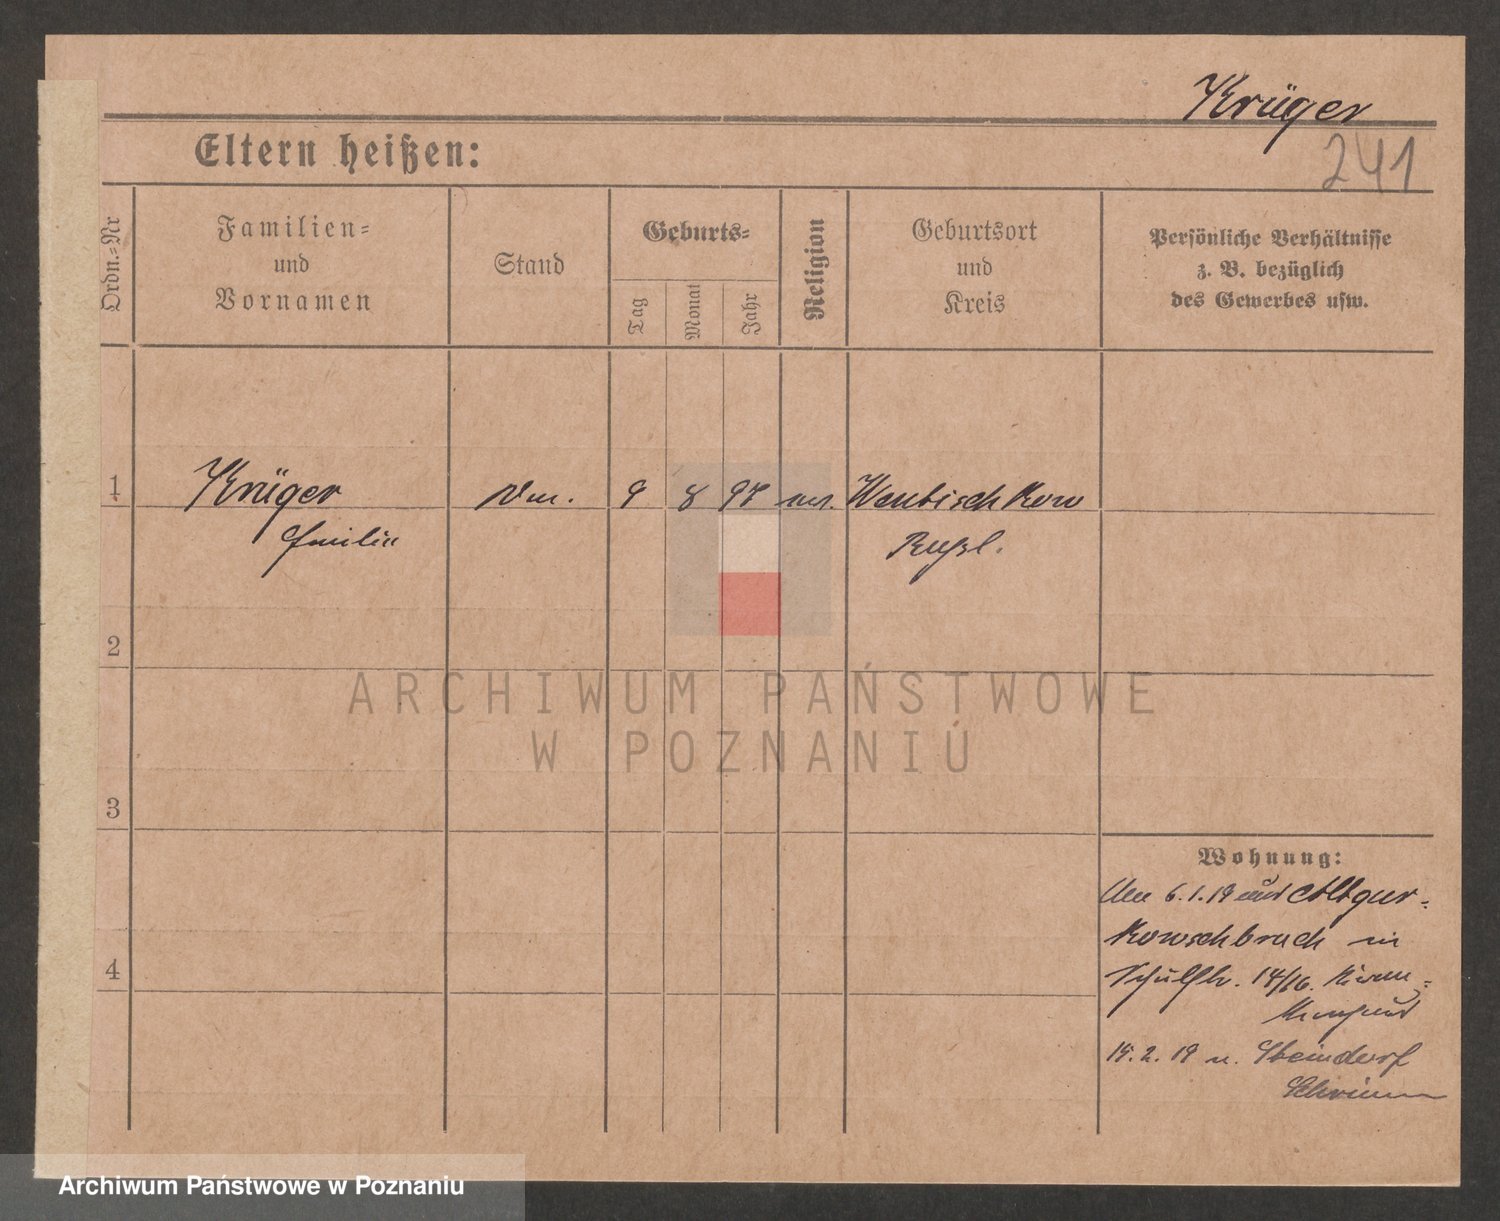 Krüger
241
Eltern heißen:
Ordn.-Nr
Familien-
und
Vornamen
Stand
Geburts-
Tag
Monat
Jahr
Religion
Geburtsort
und
Kreis
Persönliche Verhältnisse
z. B. bezüglich
des Gewerbes usw.
1
Krüger
9 8 97
Emilie
Rußl.
2
ARCHIWUM PAŃSTWOWE
W POZNANIU
3
Wohnung:
6.1.19
in
4
14/16.
15.2.19 n. Steindorf
Schrimm
Archiwum Państwowe w Poznaniu